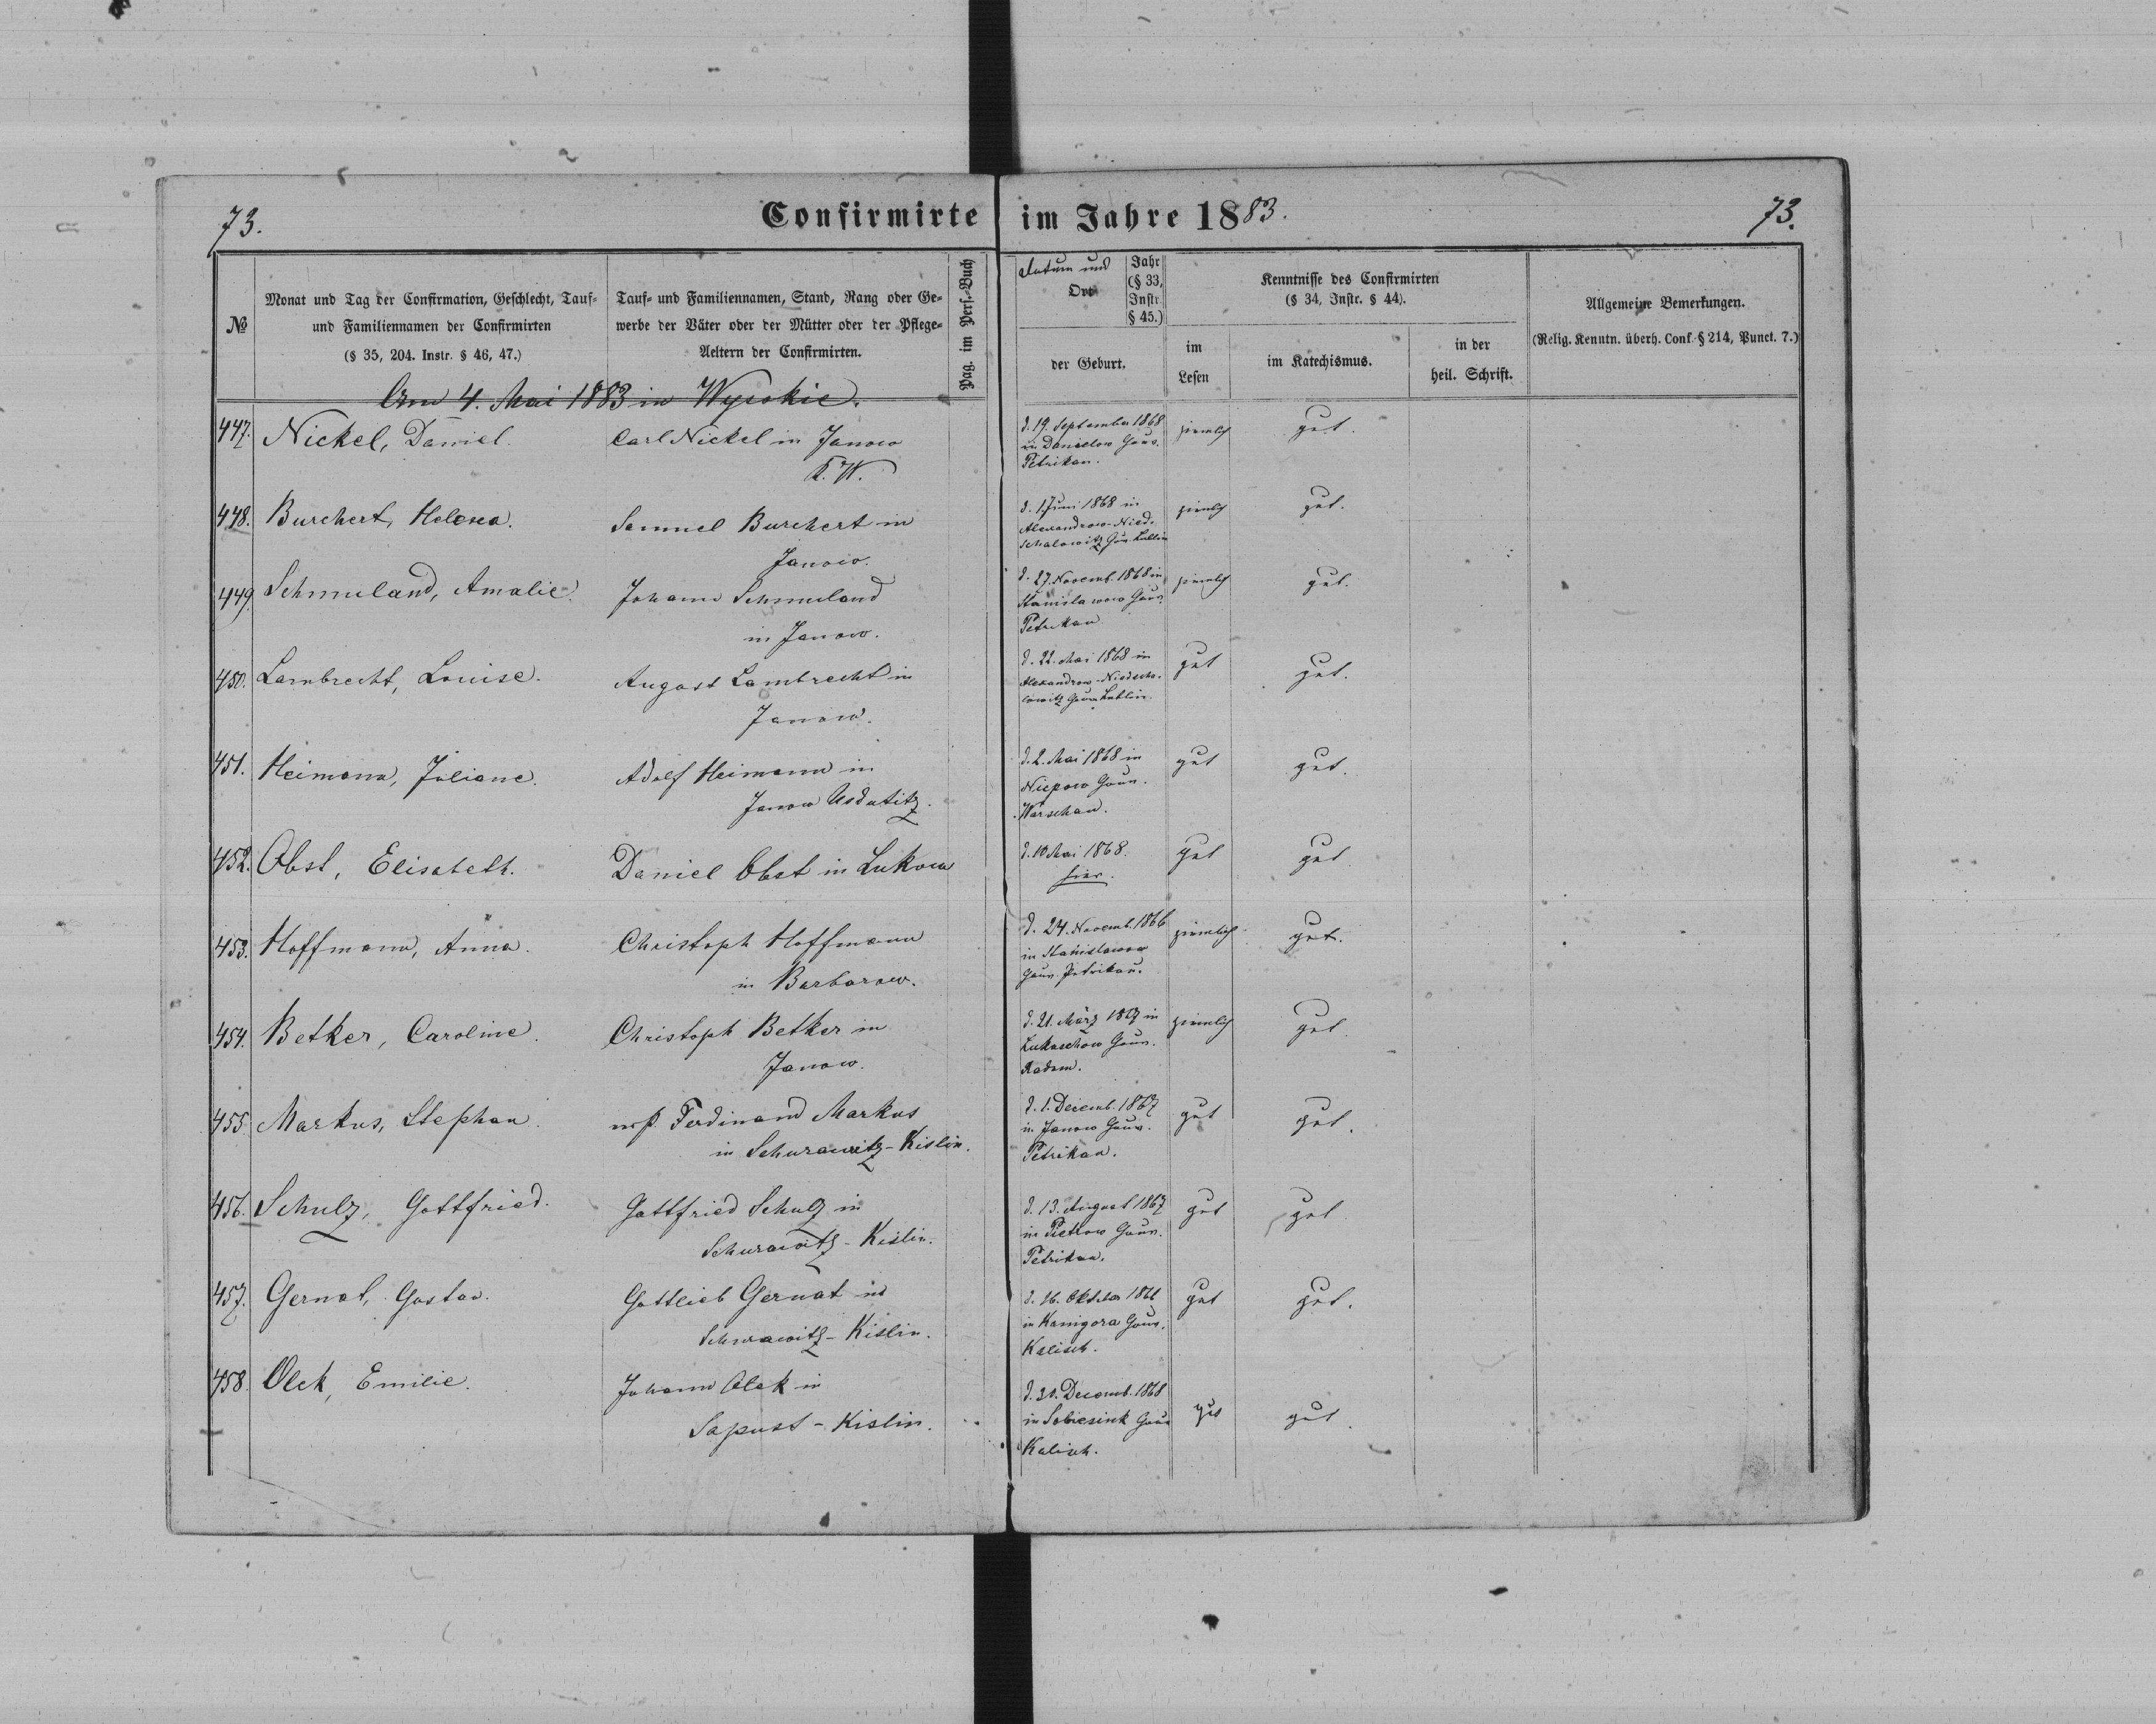 73.
Confirmirte im Jahre 1883.
73.
№
Monat und Tag der Confirmation, Geschlecht, Tauf-
und Familiennamen der Confirmirten
(§ 35, 204. Instr. § 46, 47.)
Tauf- und Familiennamen, Stand, Rang oder Ge-
werbe der Väter oder der Mütter oder der Pflege-
Aeltern der Confirmirten.
Pag. im Pers.-Buch
Datum und
Ort
Jahr
(§ 33,
Instr.
§ 45.)
der Geburt.
Kenntnisse des Confirmirten
(§ 34, Instr. § 44).
im
Lesen
im Katechismus.
in der
heil. Schrift.
Allgemeine Bemerkungen.
(Relig. Kenntn. überh. Conf. § 214, Punct. 7.)
Am 4. Mai 1883 in Wysokie.
447. Nickel, Daniel. Carl Nickel in Janow d. 19. September 1868 ziemlich gut.
K. W. in Danielow Gouv.
Petrikau.
448. Burchert, Helena. Samuel Burchert in d. 1 Juni 1868 in ziemlich gut.
Janow. Alexandrow-Nied-
schalowitz Gouv. Lublin
449. Schmuland, Amalie. Johann Schmuland d. 27. Novemb. 1868 in ziemlich gut.
in Janow. Stanislawow Gouv.
Petrikau
450. Lambrecht, Louise. August Lambrecht in d. 22. Mai 1868 in gut gut.
Janow. Alexandrow-Niedscha-
lowitz Gouv. Lublin.
451. Heimann, Juliane. Adolf Heimann in d. 2. Mai 1868 in gut gut.
Janow Usdutitz. Niepow Gouv.
Warschau.
452. Obst, Elisabeth. Daniel Obst in Lukow d. 10 Mai 1868. gut gut
hier.
453. Hoffmann, Anna. Christoph Hoffmann d. 24. Novemb. 1866 ziemlich gut.
in Barbarow. in Stanislawow
Gouv. Petrikau.
454. Betker, Caroline. Christoph Betker in d. 21. März 1867 in ziemlich gut.
Janow. Lukaschow Gouv.
Radom.
455. Markus, Stephan. Ferdinand Markus d. 1. Decemb. 1867 gut gut.
in Schurawitz-Kislin. in Janow Gouv.
Petrikau.
456. Schulz, Gottfried. Gottfried Schulz in d. 13. August 1867 gut gut
Schurawitz-Kislin. in Pietrow Gouv.
Petrikau.
457. Gernat, Gustav. Gottlieb Gernat in d. 16. Oktober gut gut.
Schurawitz-Kislin. in Kamigora Gouv.
Kalisch.
458. Olek, Emilie. Johann Olek in d. 20. Decemb. 1868 gut gut.
Sapust-Kislin. in Sobiesink Gouv
Kalisch.